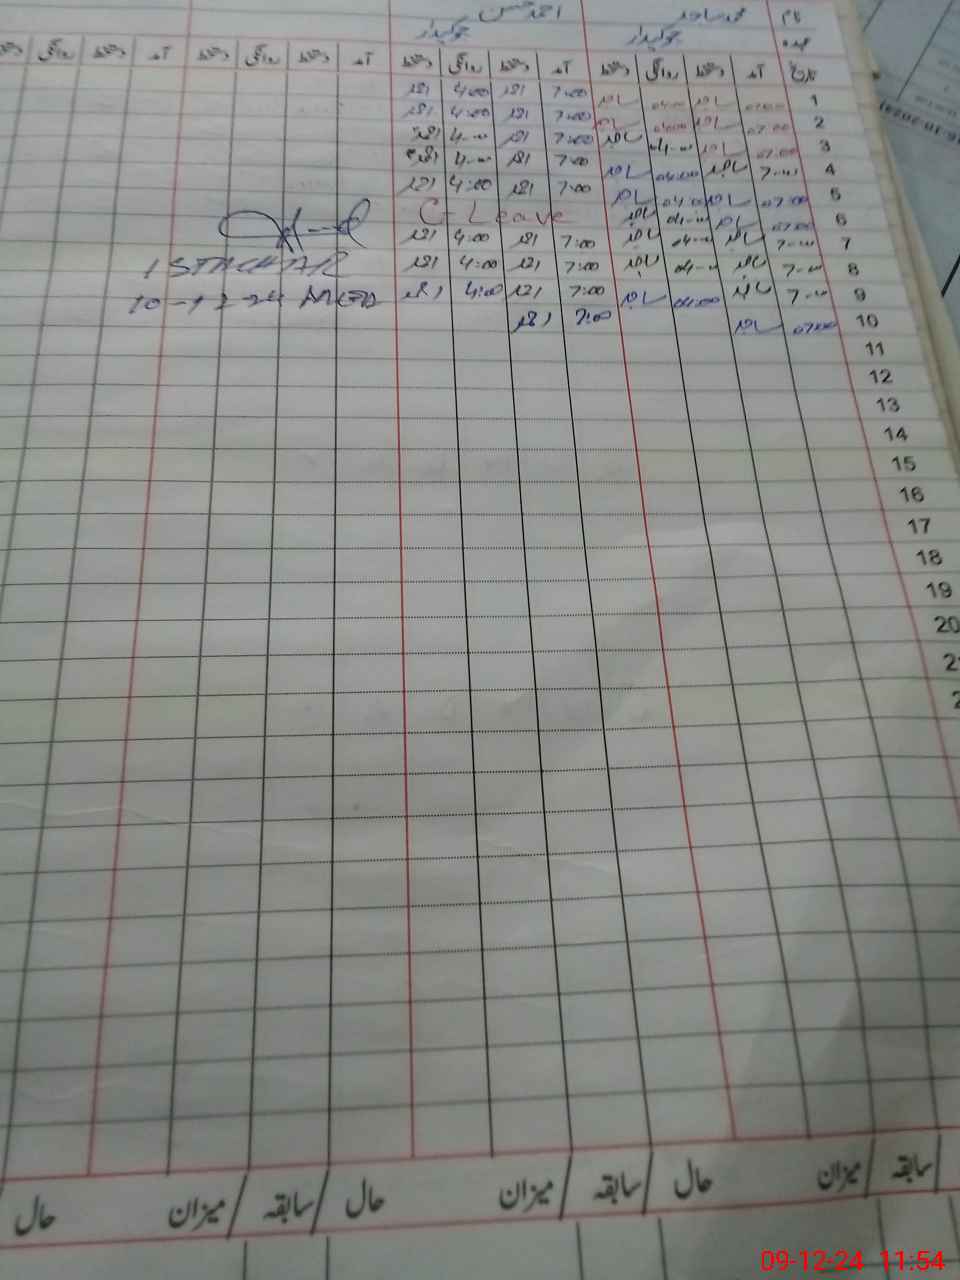 نام محمد ساجد احمد حسن
عہدہ چوکیدار چوکیدار
تاریخ آمد دستخط روانگی دستخط آمد دستخط روانگی دستخط آمد دستخط روانگی دستخط آمد دستخط روانگی دستخط
1 07:00 ساجد 04:00 ساجد 7:00 احمد 4:00 احمد
2 07:00 ساجد 04:00 ساجد 7:00 احمد 4:00 احمد
3 07:00 ساجد 04:00 ساجد 7:00 احمد 4:00 احمد
4 7:00 ساجد 04:00 ساجد 7:00 احمد 4:00 احمد
5 07:00 ساجد 04:00 ساجد 7:00 احمد 4:00 احمد
6 07:00 ساجد 04:00 ساجد C-Leave
7 7:00 ساجد 04:00 ساجد 7:00 احمد 4:00 احمد
8 7:00 ساجد 04:00 ساجد 7:00 احمد 4:00 احمد
9 7:00 ساجد 04:00 ساجد 7:00 احمد 4:00 احمد
10 07:00 ساجد 7:00 احمد
10-12-24
11
12
13
14
15
16
17
18
19
20
سابقہ میزان حال سابقہ میزان حال سابقہ میزان حال
09-12-24 11:54